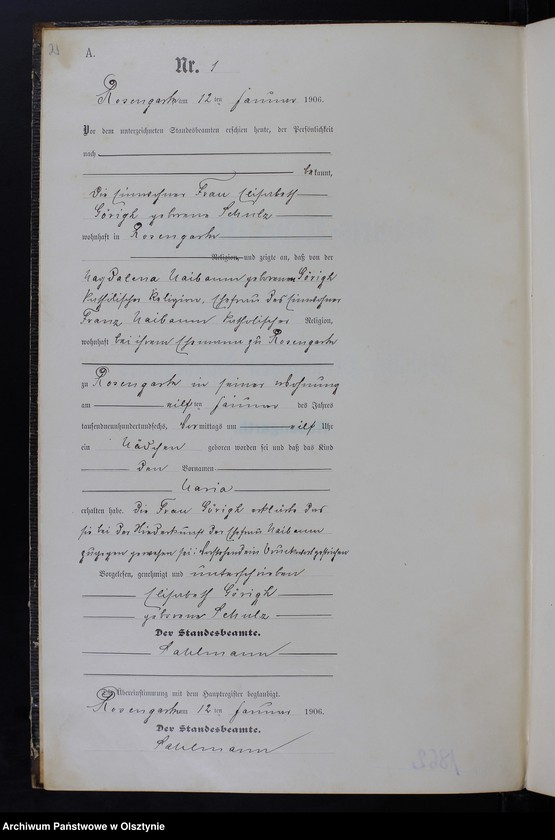 A.
Nr. 1
Rosengarth am 12 ten Januar 1906.
Vor dem unterzeichneten Standesbeamten erschien heute, der Persönlichkeit
nach
bekannt,
die Einwohner Frau Elisabeth
Görigk geborene Schulz
wohnhaft in Rosengarth
Religion, und zeigte an, daß von der
Magdalena Maibaum geborenen Görigk
katholischer Religion, Ehefrau des Einwohner
Franz Maibaum katholischer Religion,
wohnhaft bei ihrem Ehemanne zu Rosengarth
zu Rosengarth in seiner Wohnung
am eilften Januar des Jahres
tausendneunhundertundsechs, Vormittags um eilf Uhr
ein Mädchen geboren worden sei und daß das Kind
den Vornamen
Maria
erhalten habe. Die Frau Görigk erklärte das
sie bei der Niederkunft der Ehefrau Maibaum
zugegen gewesen sei. Vorstehend ein Druckwort gestrichen
Vorgelesen, genehmigt und unterschrieben
Elisabeth Görigk
geborene Schulz
Der Standesbeamte.
Die Übereinstimmung mit dem Hauptregister beglaubigt.
Rosengarth am 12 ten Januar 1906.
Der Standesbeamte.
Archiwum Państwowe w Olsztynie